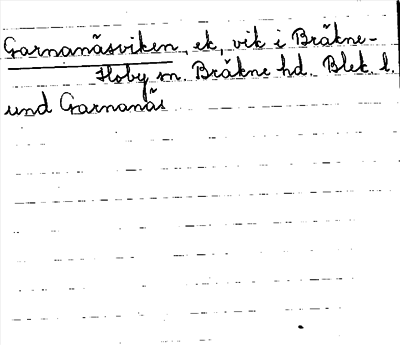 Garnanäsviken, ek, vik i Bräkne-
Hoby sn. Bräkne hd. Blek. l.
und Garnanäs